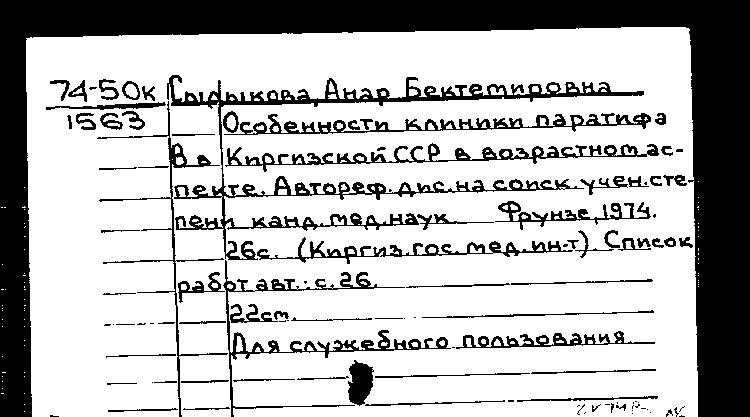 74-50к Сыдыкова, Анар Бектемировна
1563 Особенности клиники паратифа
В в Киргизской ССР в возрастном ас-
пекте. Автореф. дис. на соиск. учен. сте-
пени канд. мед. наук. Фрунзе, 1974.
26с. (Киргиз. гос. мед. ин-т). Список
работ авт.: с. 26.
22см.
Для служебного пользования.